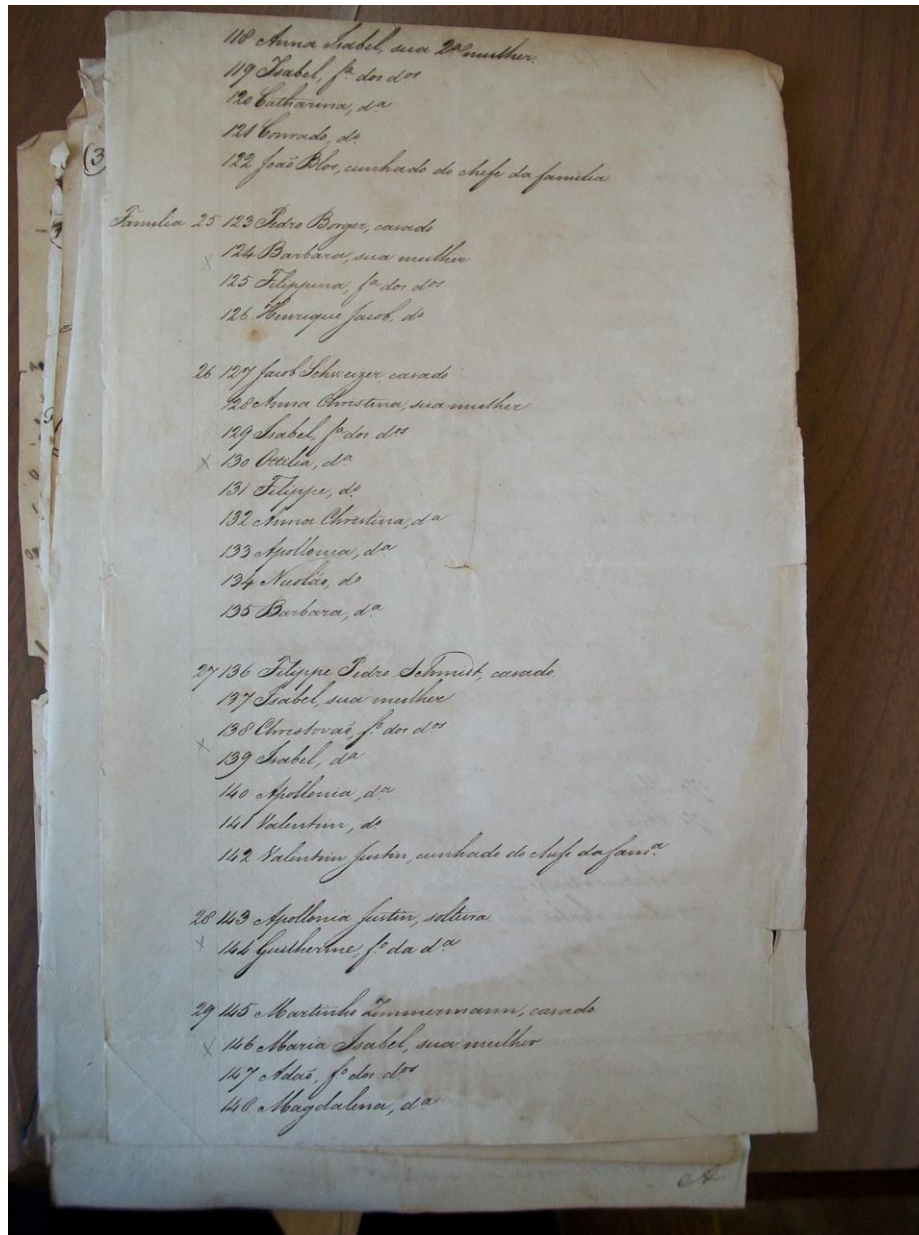 118 Anna Isabel, sua 2ª mulher.
119 Isabel, fª dos dos
120 Catharina, dª
121 Conrado, dº
122 João Blos, cunhado do chefe da familia
(3
Familia 25 123 Pedro Borger, casado
X 124 Barbara, sua mulher
125 Filippina, fª dos dos
126 Henrique Jacob, dº
26 127 Jacob Schweizer, casado
128 Anna Christina, sua mulher
129 Isabel, fª dos dos
X 130 Ottilia, dª
131 Filippe, dº
132 Anna Christina, dª
133 Apollonia, dª
134 Nicolão, dº
135 Barbara, dª
27 136 Filippe Pedro Schmidt, casado
137 Isabel, sua mulher
X 138 Christovaõ, fº dos dos
139 Isabel, dª
140 Apollonia, dª
141 Valentim, dº
142 Valentim Justin, cunhado do chefe da famª
28 143 Apollonia Justin, solteira
X 144 Guilherme, fº da dª
29 145 Martinho Zimmermann, casado
X 146 Maria Isabel, sua mulher
147 Adaõ, fº dos dos
148 Magdalena, dª